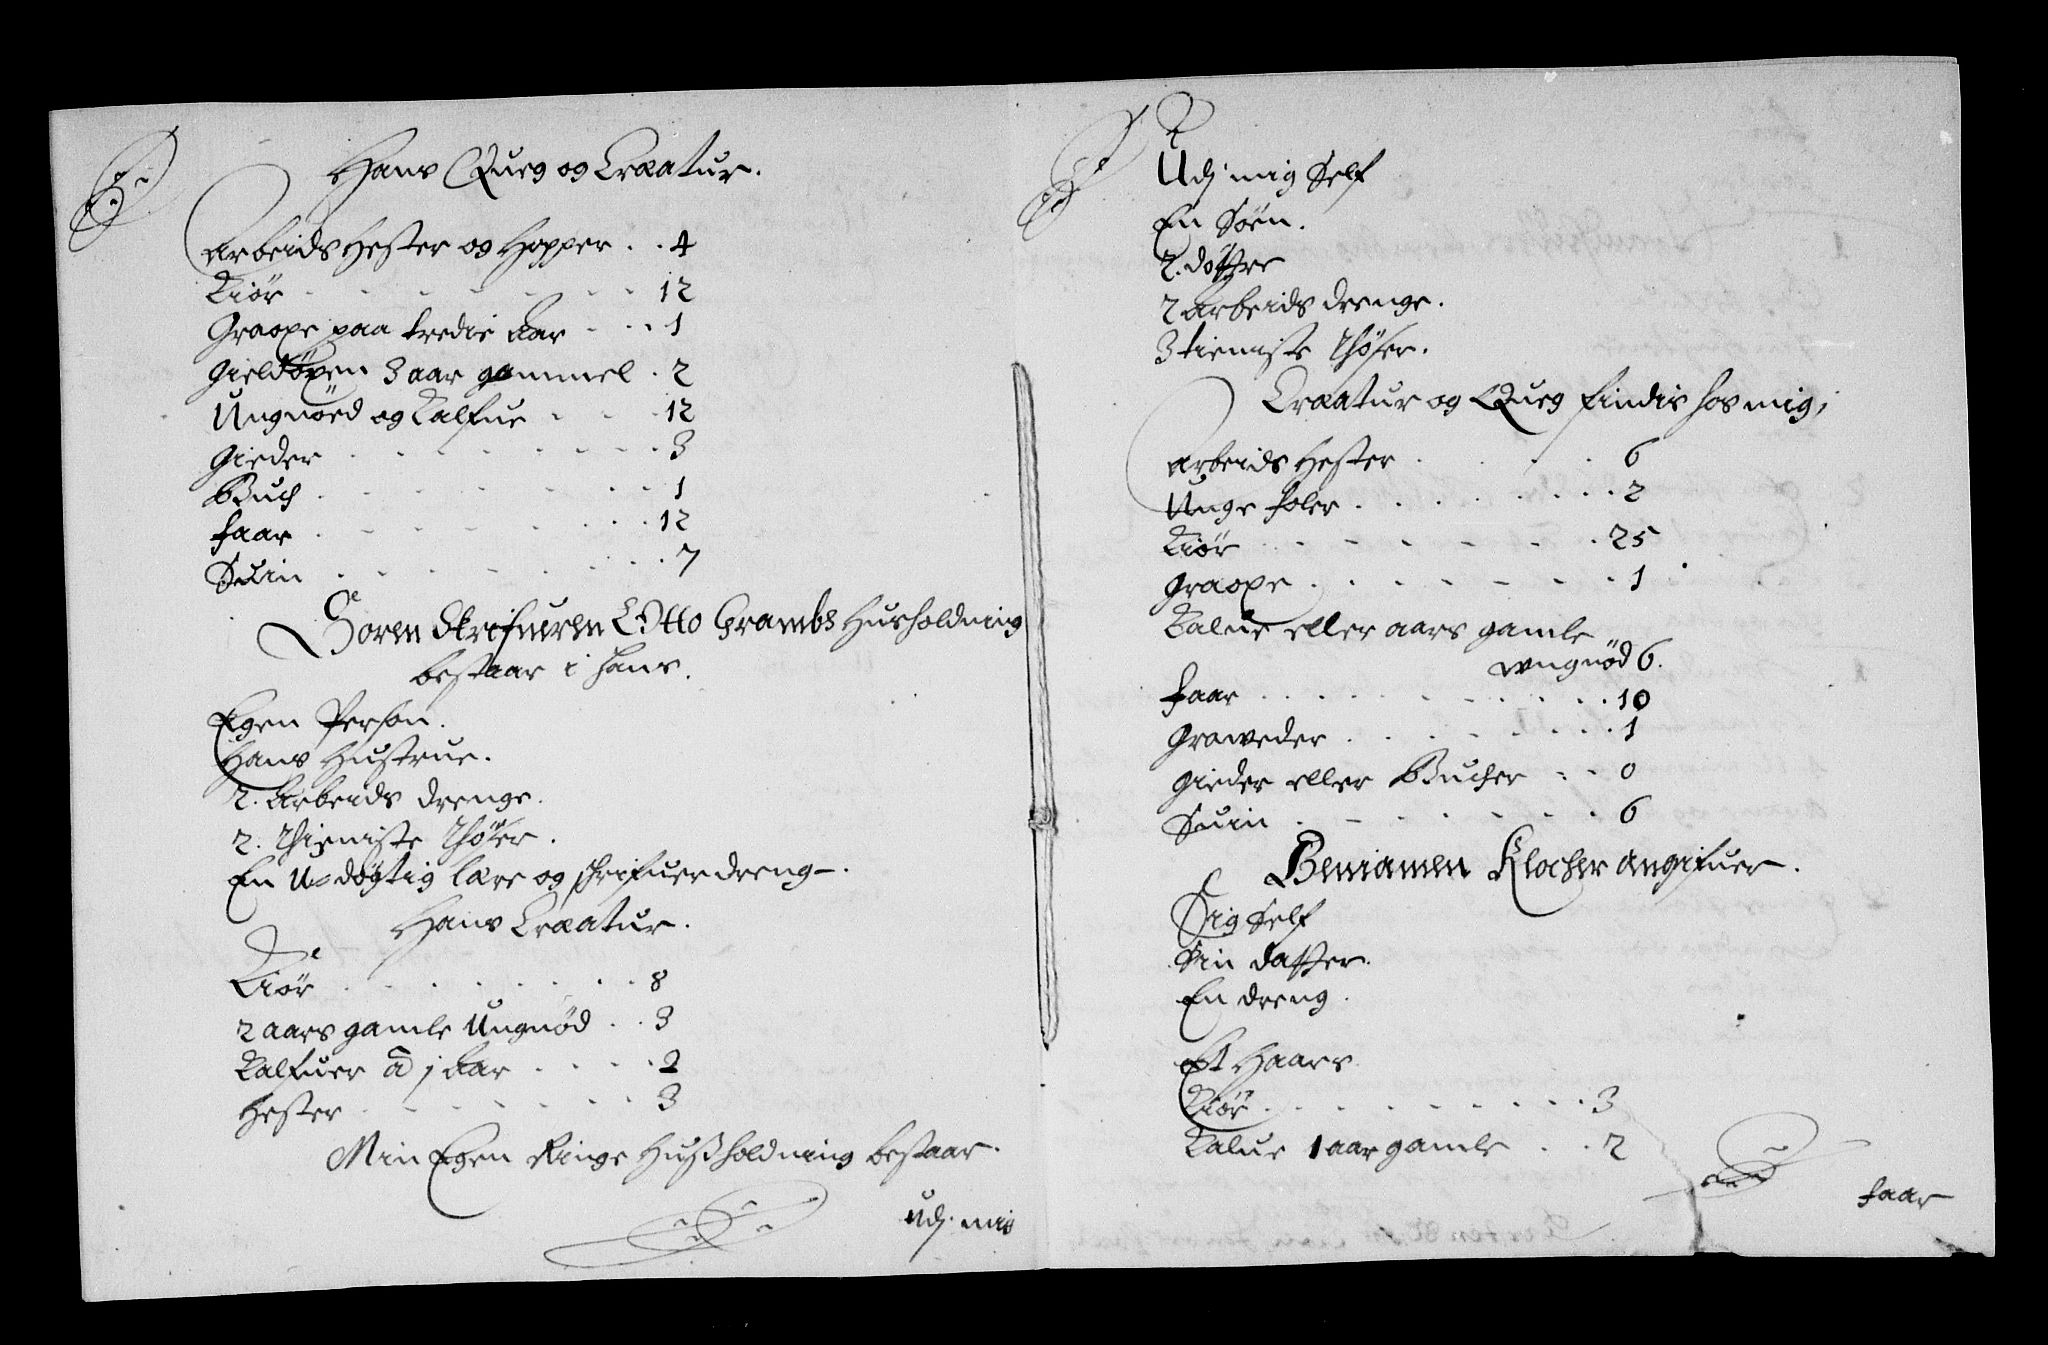 Hans Queg og Creatur.
Arbeids Hester og Hopper . . 4
Kiør 12
Graoxe paa tredie Aar 1
Gield öxen 3 aar gammel . 2
Ungnöed og Kalfue 12
Gieder 3
Buch 1
faar 12
Suin 7
Soren Skrifueren Otto Grambs Husholdning
bestaar i hans.
Egen Person.
Hans Hustrue.
2. Arbeids drenge.
2. thieniste thöser.
En U-døgtig lære og schrifuer dreng.
Hans Creatur.
Kiør 8
2 aars gamle Ungnød . . 3
Kalfuer a 1 Aar 2
Hester 3
Min Egen Ringe Husholdning bestaar.
Udj. mig
Udj mig Self
En Søen.
2. døttre
2 Arbeids drenge.
3 tieniste thöser.
Creatur og Queg findis hos mig,
Arbeids Hester 6
Unge foler 2
Kiør 25
Graoxe 1
Kalue eller aars gamle
ungnød 6.
faar 10
Graweder 1
Gieder eller Bucher 0
Suin 6
Beniamen Klocher angifuer.
Sig Self
Sin datter.
En dreng.
Et Haars
Kiör 3
Kalue 1 aar gamle . . 2
faar